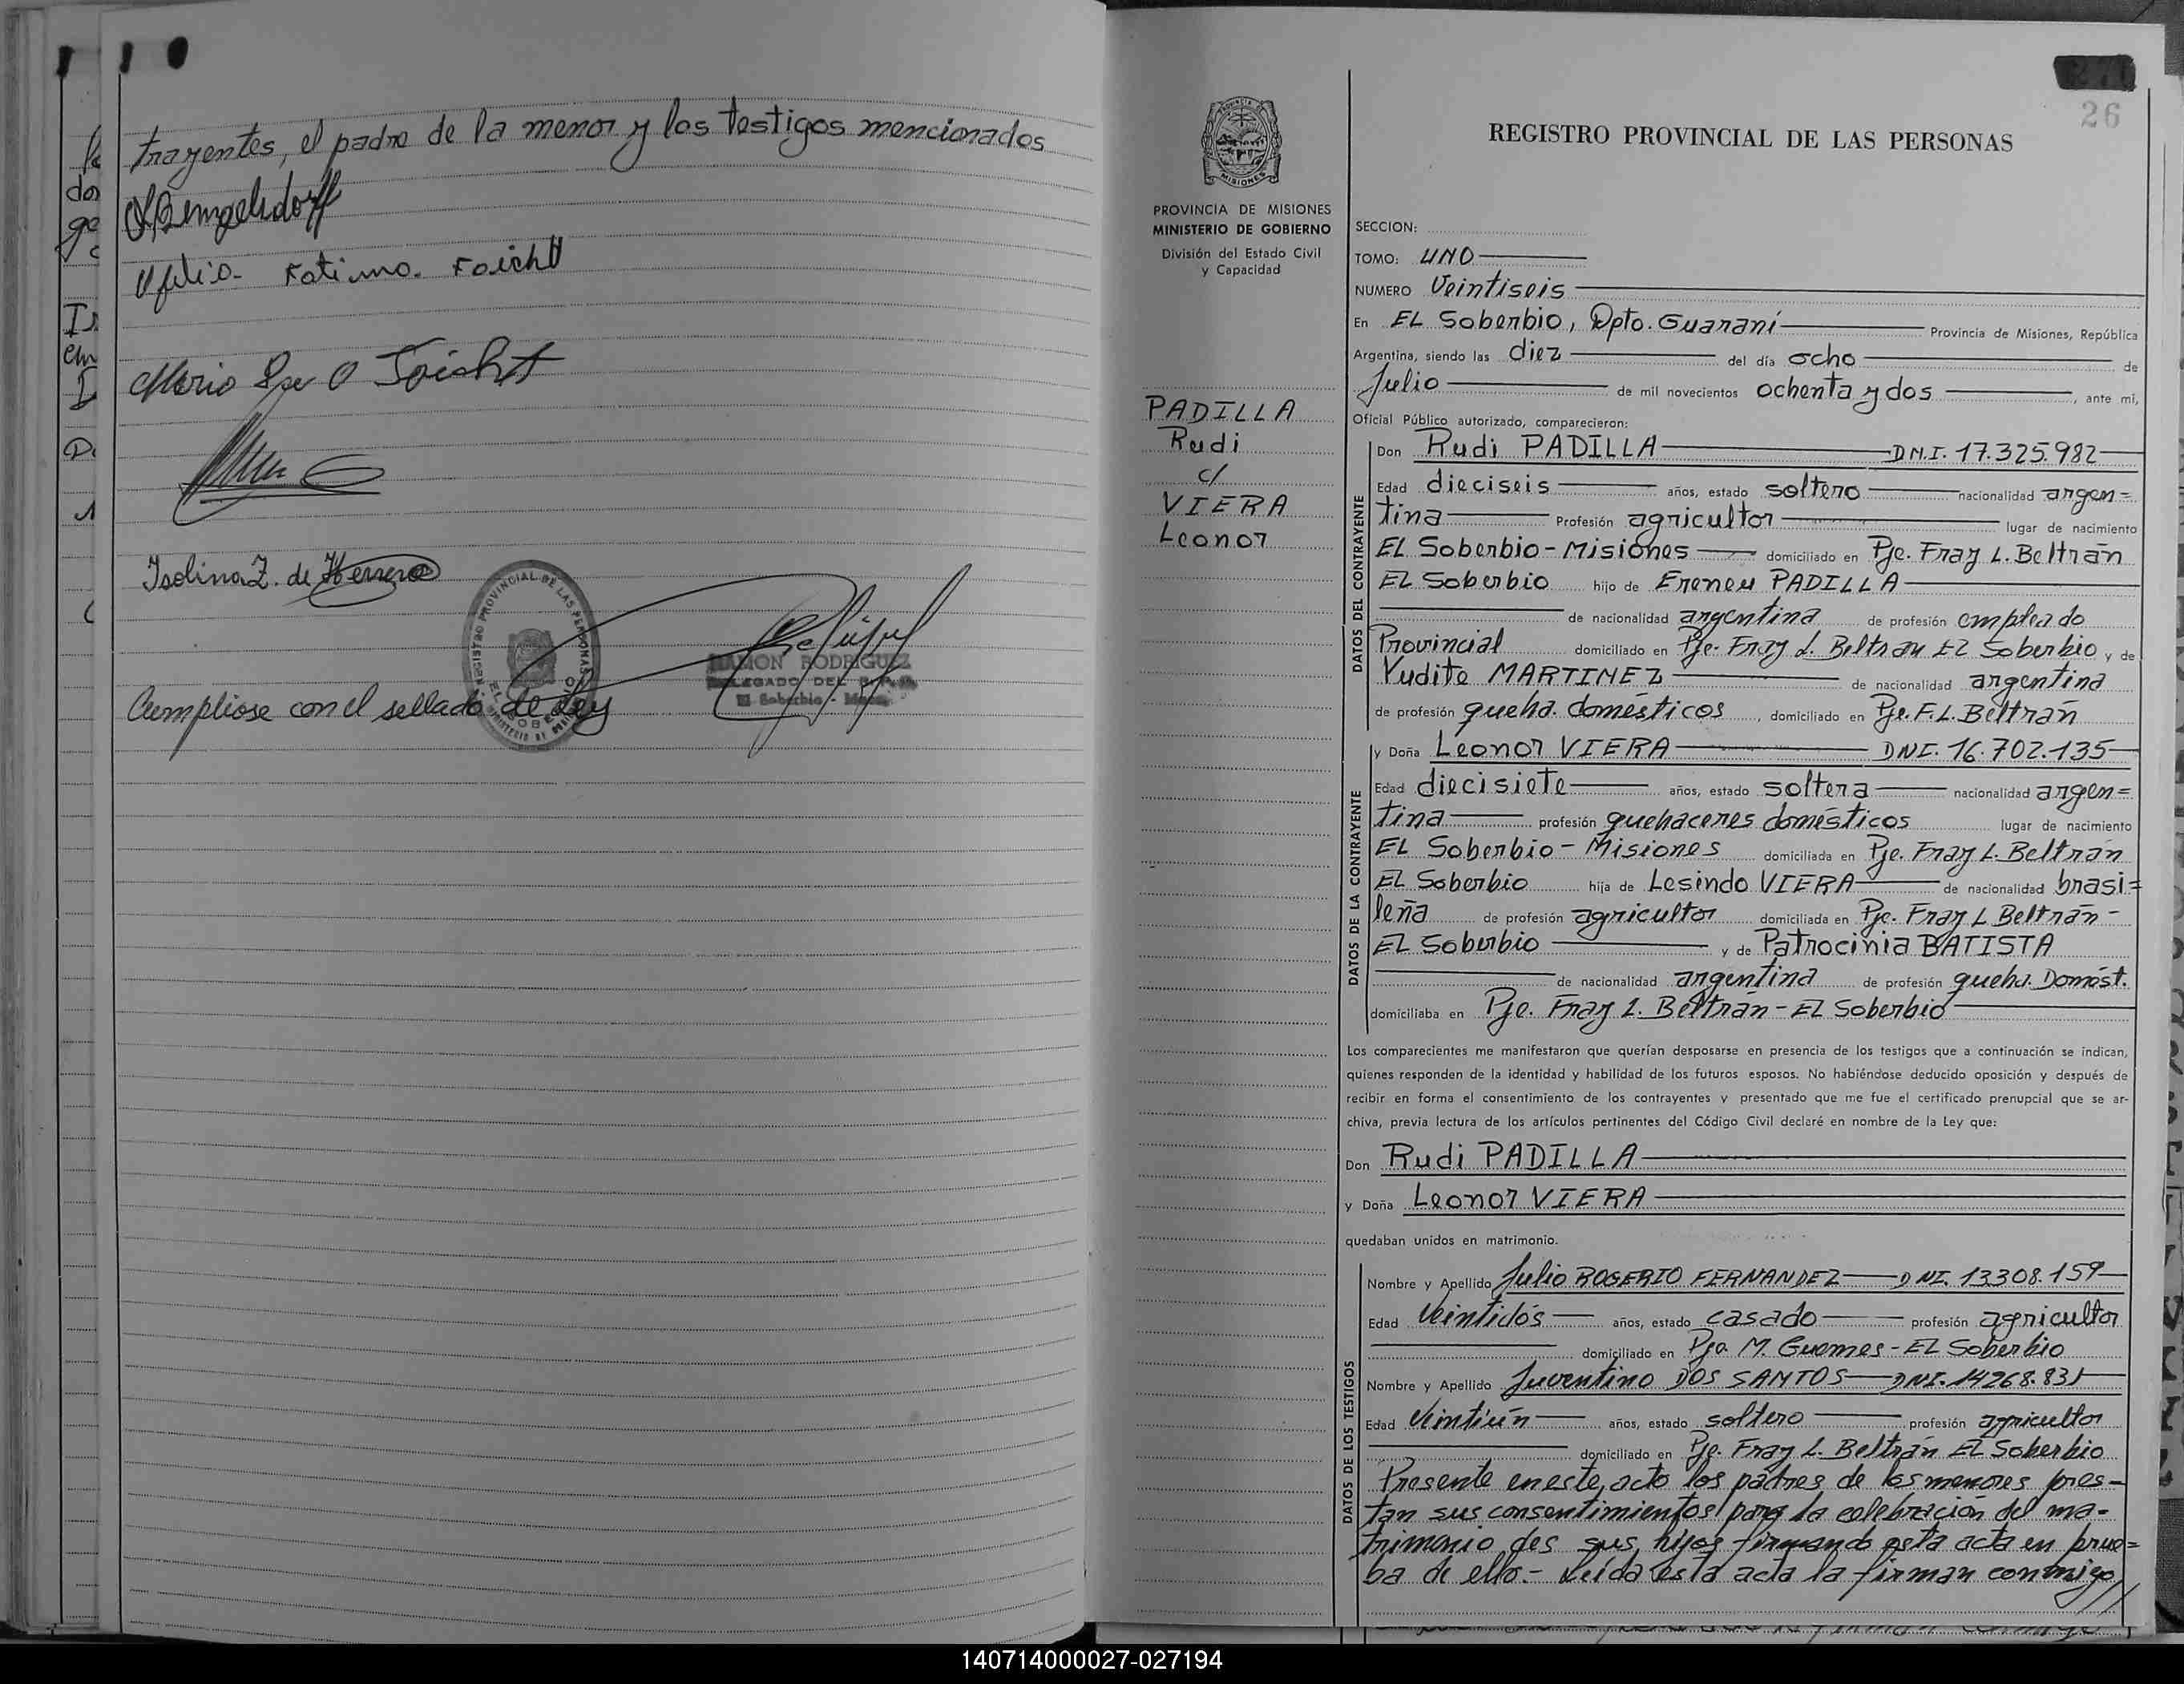 trayentes, el padre de la menor y los testigos mencionados
Fatima. Foicht
Isolina Z. de Herrera
REGISTRO PROVINCIAL DE LAS PERSONAS
EL SOBERBIO
RAMON RODRIGUEZ
DELEGADO DEL
El Soberbio - Mnes.
Cumpliose con el sellado de Ley
26
PROVINCIA DE MISIONES
PROVINCIA DE MISIONES
MINISTERIO DE GOBIERNO
División del Estado Civil
y Capacidad
PADILLA
Rudi
c/
VIERA
Leonor
REGISTRO PROVINCIAL DE LAS PERSONAS
SECCION:
TOMO: UNO
NUMERO Veintiseis
En EL Soberbio, Dpto. Guaraní Provincia de Misiones, República
Argentina, siendo las diez del día ocho de
Julio de mil novecientos ochenta y dos, ante mí,
Oficial Público autorizado, comparecieron:
DATOS DEL CONTRAYENTE
Don Rudi PADILLA D.N.I. 17.325.982
Edad dieciseis años, estado soltero nacionalidad argen=
tina Profesión agricultor lugar de nacimiento
EL Soberbio - Misiones domiciliado en Pje. Fray L. Beltrán
EL Soberbio hijo de Ereneu PADILLA
de nacionalidad argentina de profesión empleado
Provincial domiciliado en Pje. Fray L. Beltran El Soberbio y de
Yudite MARTINEZ de nacionalidad argentina
de profesión queha. domésticos, domiciliado en Pje. F. L. Beltrán
DATOS DE LA CONTRAYENTE
y Doña Leonor VIERA DNI. 16.702.135
Edad diecisiete años, estado soltera nacionalidad argen=
tina profesión quehaceres domésticos lugar de nacimiento
EL Soberbio - Misiones domiciliada en Pje. Fray L. Beltrán
EL Soberbio hija de Lesindo VIERA de nacionalidad brasi=
leña de profesión agricultor domiciliada en Pje. Fray L Beltrán -
EL Soberbio y de Patrocinia BATISTA
de nacionalidad argentina de profesión queha. Domést.
domiciliaba en Pje. Fray L. Beltrán - EL Soberbio
Los comparecientes me manifestaron que querían desposarse en presencia de los testigos que a continuación se indican,
quienes responden de la identidad y habilidad de los futuros esposos. No habiéndose deducido oposición y después de
recibir en forma el consentimiento de los contrayentes y presentado que me fue el certificado prenupcial que se ar-
chiva, previa lectura de los artículos pertinentes del Código Civil declaré en nombre de la Ley que:
Don Rudi PADILLA
y Doña Leonor VIERA
quedaban unidos en matrimonio.
DATOS DE LOS TESTIGOS
Nombre y Apellido Julio ROGERIO FERNANDEZ DNI. 13308.159
Edad Veintidós años, estado casado profesión agricultor
domiciliado en Pje. M. Guemes - EL Soberbio
Nombre y Apellido Juventino DOS SANTOS DNI. 14268.831
Edad Veintiún años, estado soltero profesión agricultor
domiciliado en Pje. Fray L. Beltrán EL Soberbio
Presente en este acto los padres de los menores pres-
tan sus consentimientos para la celebración del ma-
trimonio des sus hijos firmando esta acta en prue=
ba de ello.- Leida esta acta la firman conmigo//
140714000027-027194